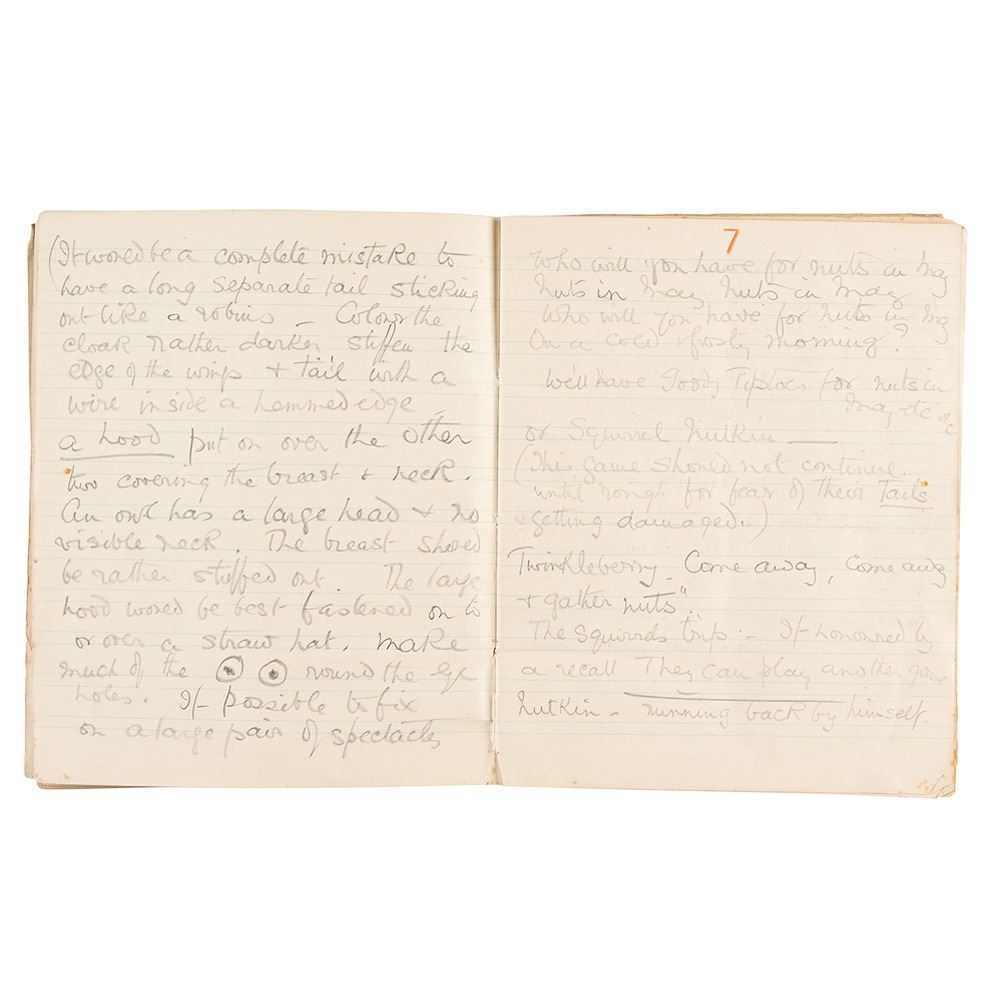 (It would be a complete mistake to
have a long separate tail sticking
out like a robins – Colour the
cloak rather darker stiffen the
edge of the wings + tail with a
wire inside a hemmed edge –
a hood put on over the other
two covering the breast + neck.
An owl has a large head + no
visible neck. The breast should
be rather stuffed out The large
hood would be best fastened on to
or over a straw hat. make
much of the ⊙ ⊙ round the eye
holes. If possible to fix
on a large pair of spectacles
7
Who will you have for nuts in May
Nuts in May, Nuts in May
Who will you have for nuts in May
On a cold & frosty morning?
We'll have Goody Tiptoes for nuts in
May etc etc
or Squirrel Nutkin —
(This game should not continue
until rough for fear of their Tails
getting damaged –)
Twinkleberry – Come away, Come away
+ gather nuts".
The Squirrels trip. – If honoured by
a recall They can play another game
Nutkin – running back by himself.